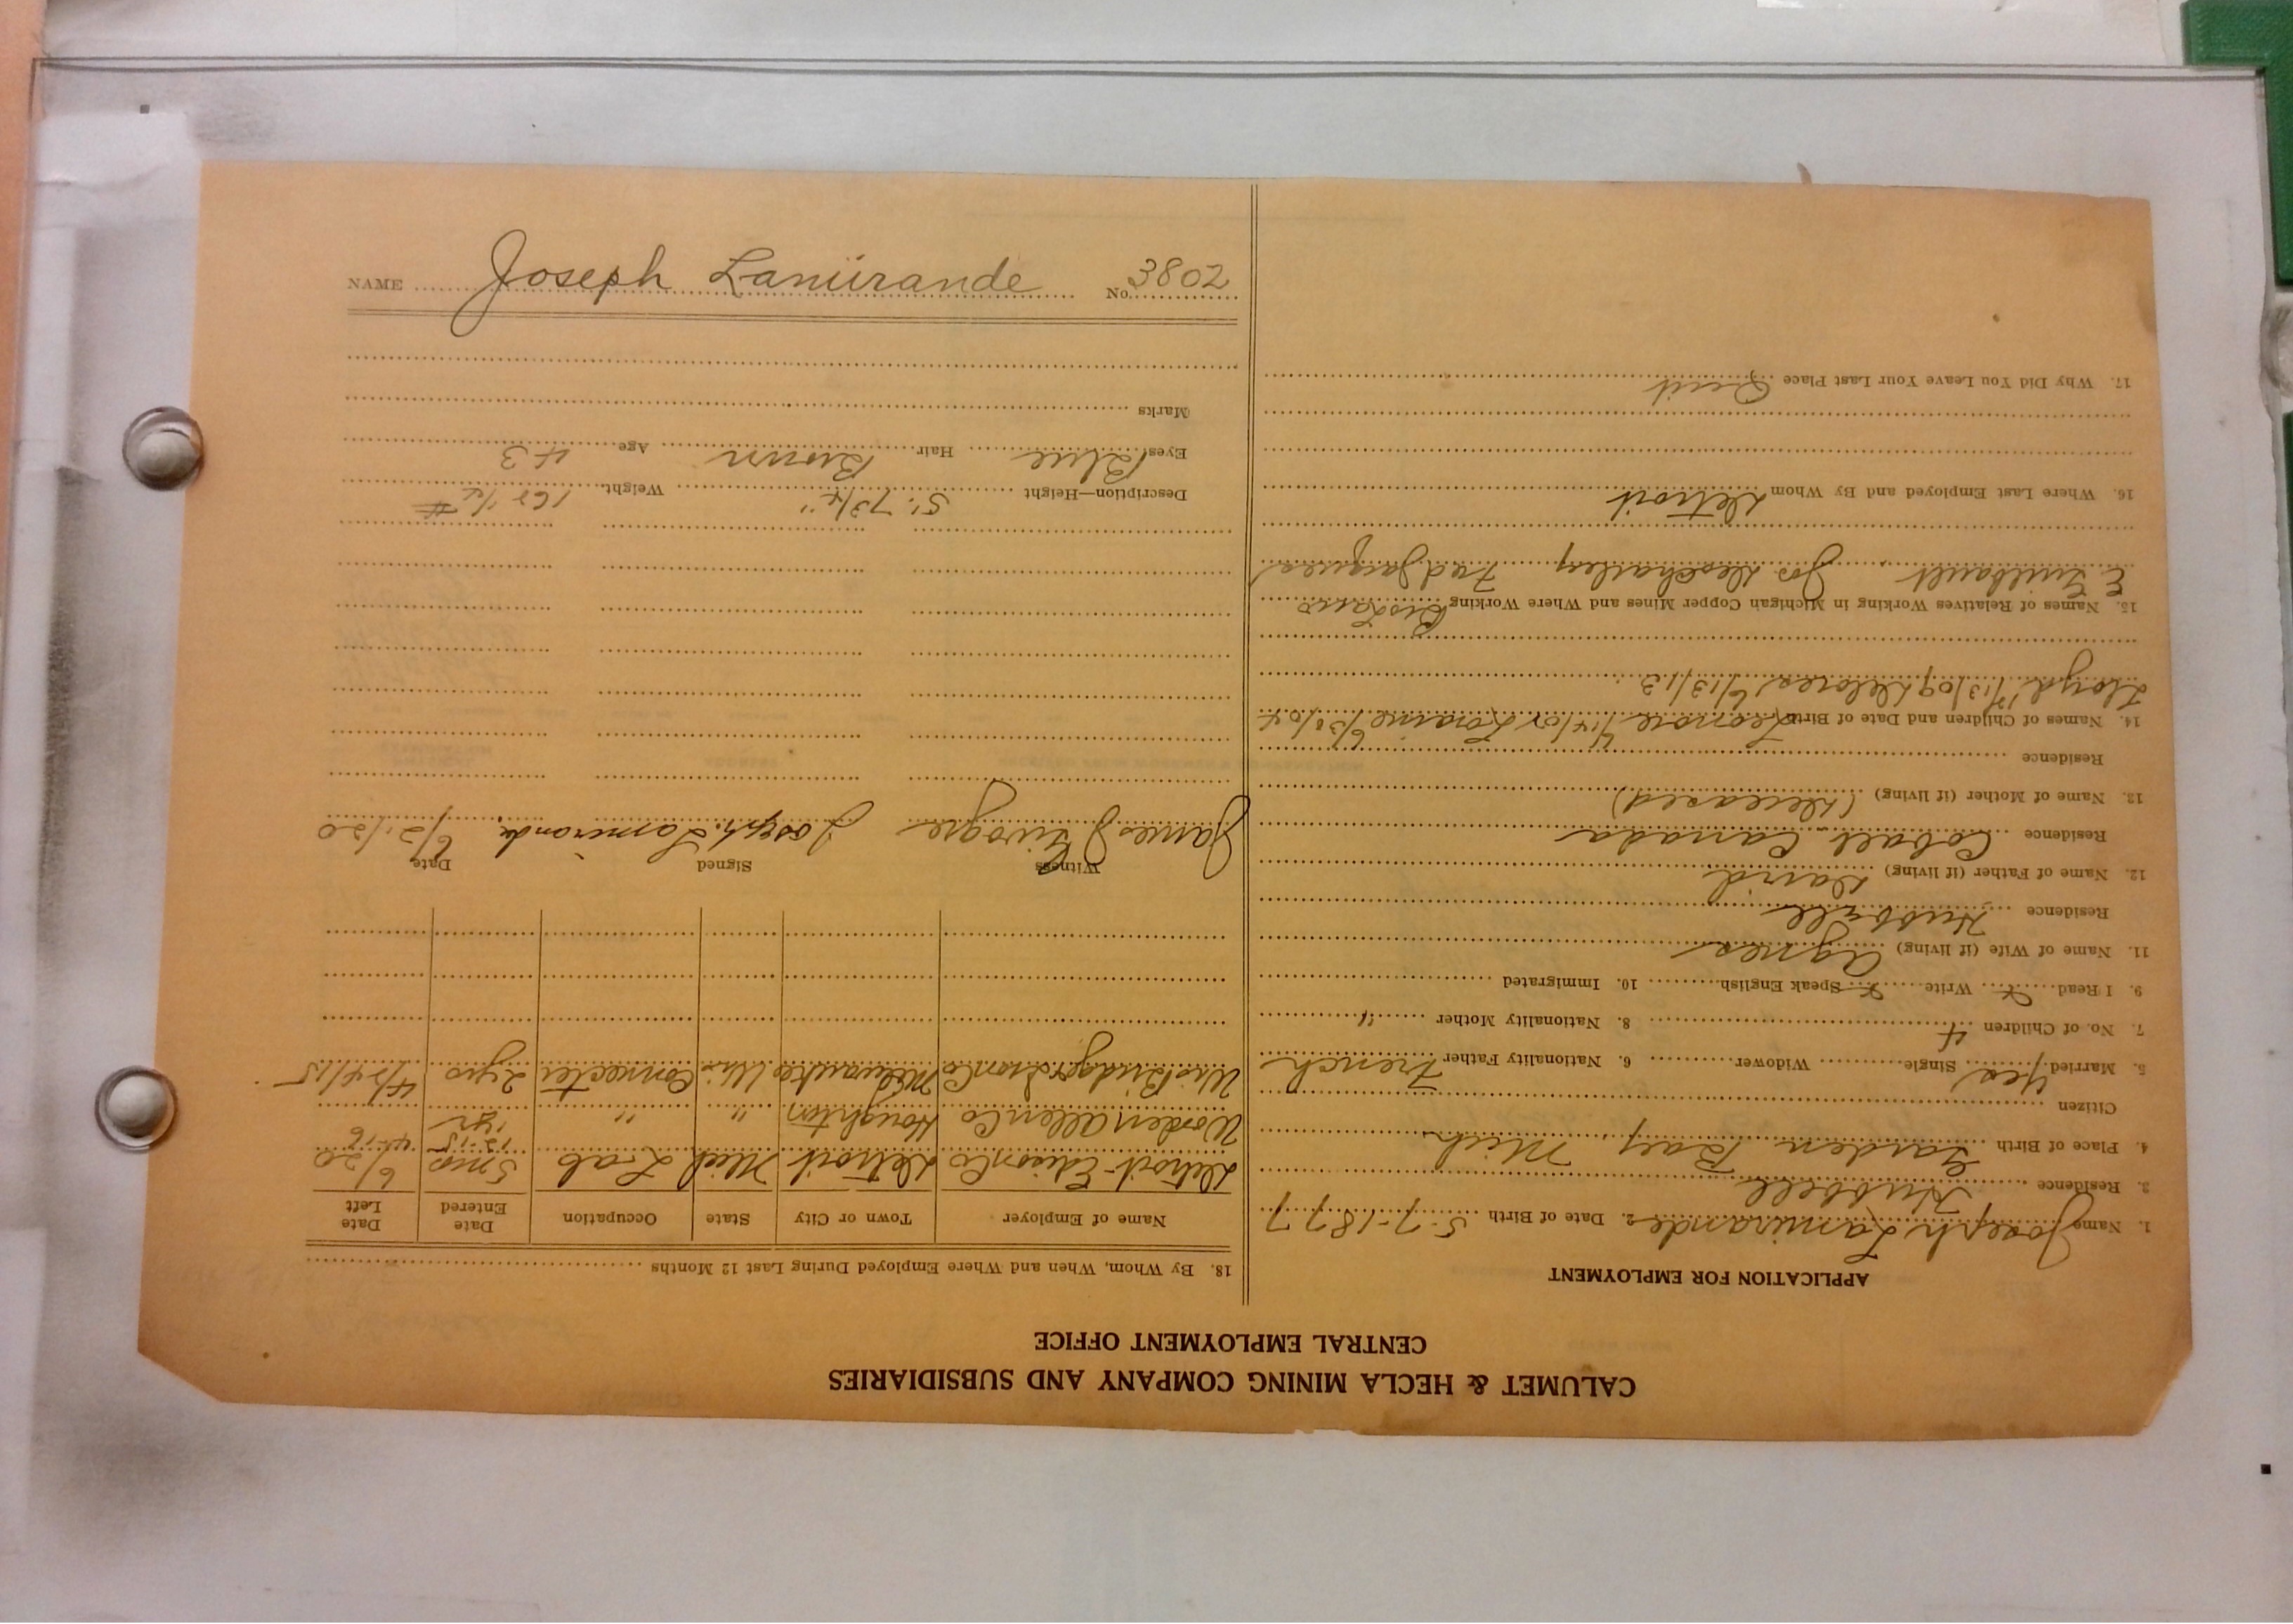 CALUMET & HECLA MINING COMPANY AND SUBSIDIARIES
CENTRAL EMPLOYMENT OFFICE
APPLICATION FOR EMPLOYMENT
1. Name Joseph Lamirande 2. Date of Birth 5-7-1877
3. Residence Hubbell
4. Place of Birth Garden Bay Mich
Citizen
5. Married yes Single Widower 6. Nationality Father French
7. No. of Children 4 8. Nationality Mother "
9. I Read x Write x Speak English 10. Immigrated
11. Name of Wife (if living) Agnes
Residence Hubbell
12. Name of Father (if living) David
Residence Cobalt Canada
13. Name of Mother (if living) (Deceased)
Residence
14. Names of Children and Date of Birth Leonore 4/14/01 Loraine 6/30/04
Lloyd 7/13/09 Delores 6/13/13
15. Names of Relatives Working in Michigan Copper Mines and Where Working
Jos Fred Jacques
16. Where Last Employed and By Whom Detroit
17. Why Did You Leave Your Last Place Quit
18. By Whom, When and Where Employed During Last 12 Months
Name of Employer Town or City State Occupation Date Entered Date Left
Detroit Edison Co Detroit Mich Lab 5 mos 6/20
Worden Allen Co Houghton " " 12-15 1 yr 4-16
Wis Bridge & Iron Co Milwaukee Wis Connecter 2 yrs 4/24/15
Witness Signed Date
James J Joseph Lamirande 6/21/20
Description—Height 5' 7 3/4" Weight 168 1/2 #
Eyes Blue Hair Brown Age 43
Marks
NAME Joseph Lamirande No. 3802